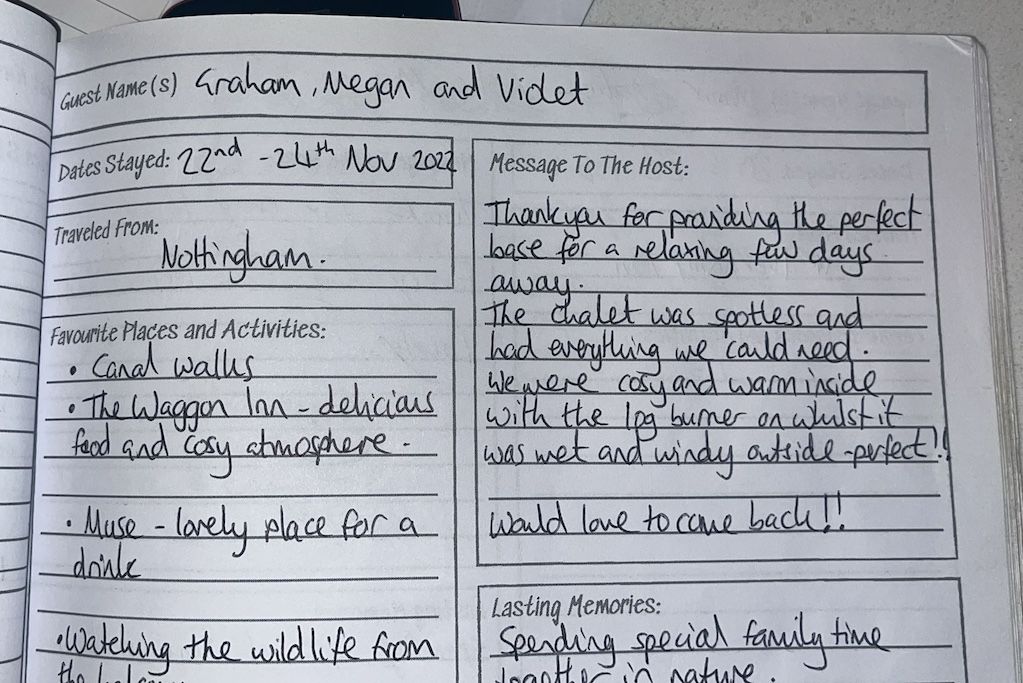 Guest Name(s) Graham, Megan and Violet
Dates Stayed: 22nd - 24th Nov 2022
Traveled From:
Nottingham.
Favourite Places and Activities:
• Canal walks
• The Waggon Inn - delicious
food and cosy atmosphere -
• Muse - lovely place for a
drink
• Watching the wildlife from
the
Message To The Host:
Thankyou for providing the perfect
base for a relaxing few days
away.
The chalet was spotless and
had everything we could need.
We were cosy and warm inside
with the log burner on whilst it
was wet and windy outside - perfect!!
Would love to come back!!
Lasting Memories:
Spending special family time
together in nature.